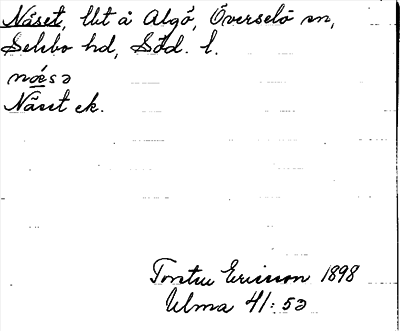 Näset, lht å Algö, Överselö sn,
Selebo hd, Söd. l.
næsə
Näset ek.
Torsten Ericsson 1898
Ulma 41:52